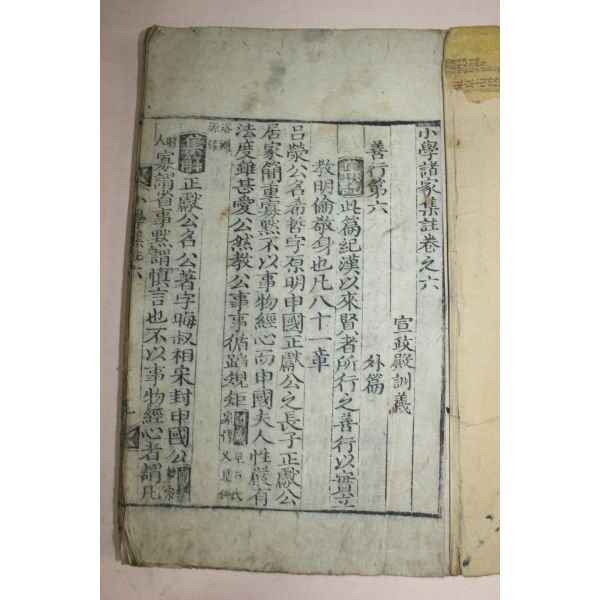 小學諸家集註卷之六
宣政殿訓義
善行第六
外篇
此篇紀漢以來賢者所行之善行以實立
教明倫敬身也凡八十一章
呂滎公名希哲字原明申國正獻公之長子正獻公
居家簡重寡默不以事物經心而申國夫人性嚴有
法度雖甚愛公然教公事事循蹈規矩
集解正獻公名公著字晦叔相宋封申國公
寡謂省事默謂慎言也不以事物經心者謂凡